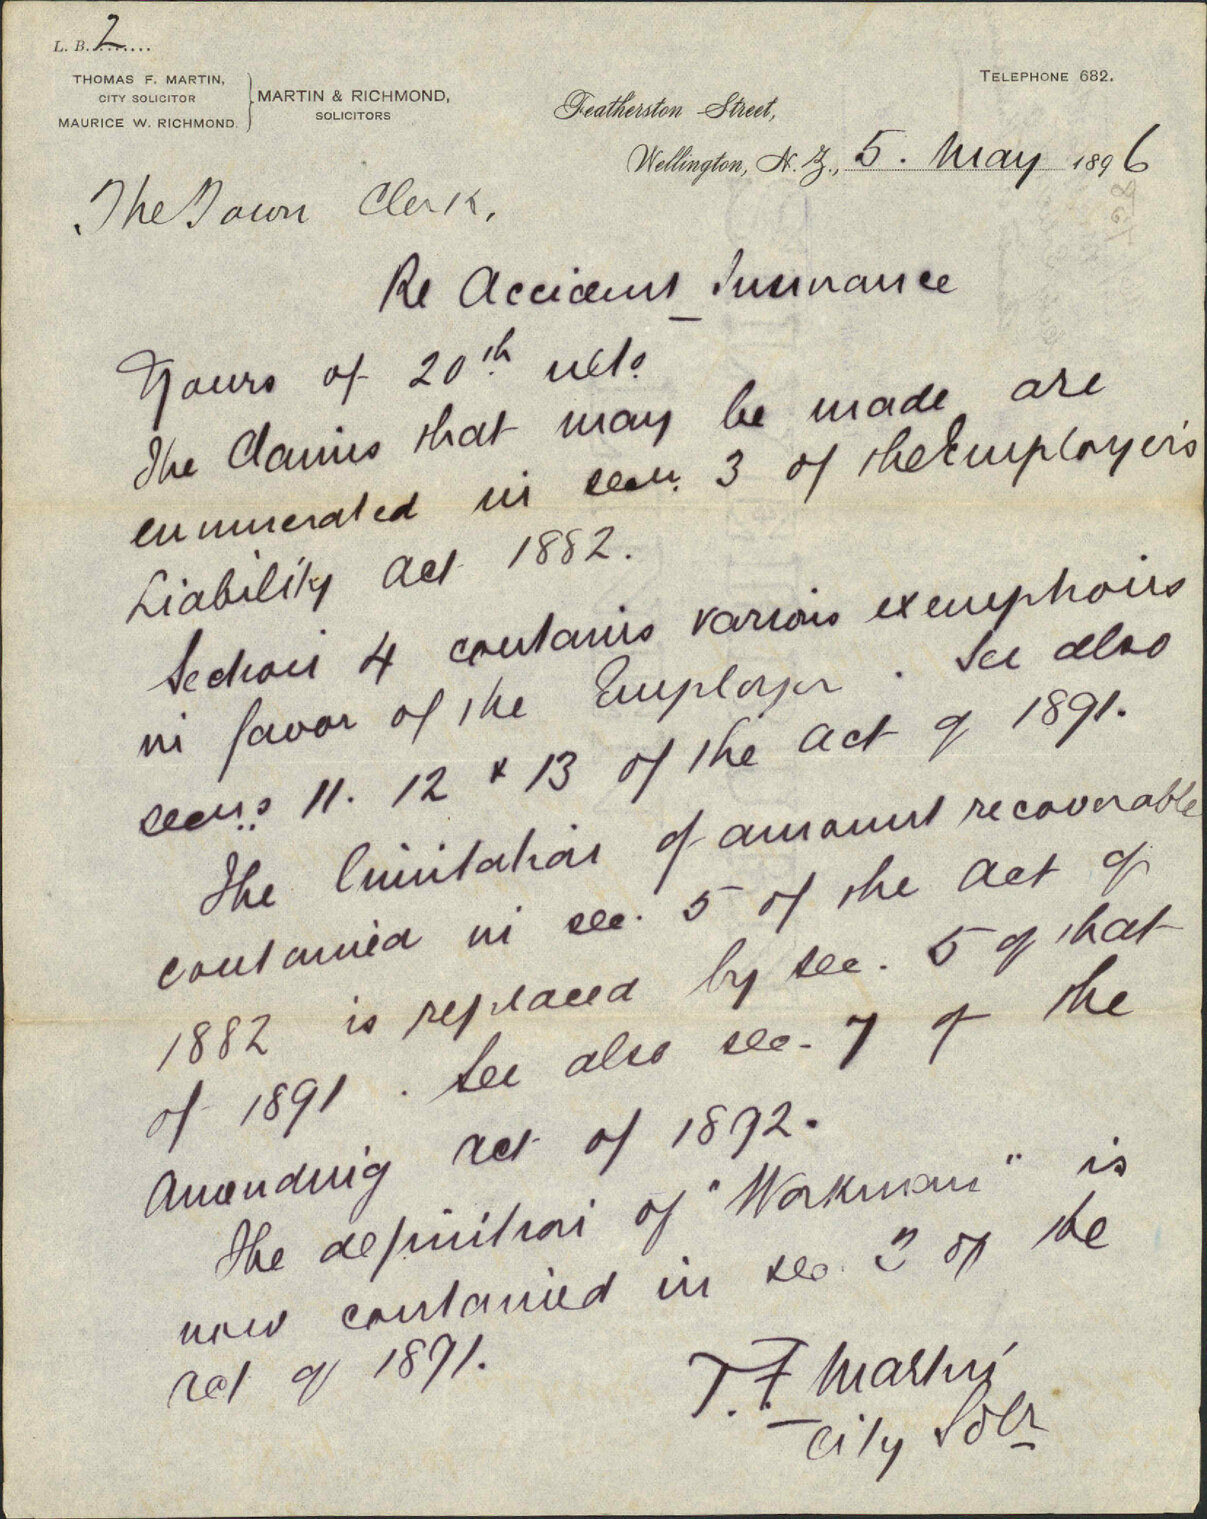 L. B. 2
THOMAS F. MARTIN,
CITY SOLICITOR
MAURICE W. RICHMOND.
MARTIN & RICHMOND,
SOLICITORS
TELEPHONE 682.
Featherston Street,
Wellington, N. Z., 5. May 1896
The Town Clerk,
Re Accident Insurance
Yours of 20th ulto.
The Claims that may be made are
enumerated in secn. 3 of the Employers
Liability Act 1882.
Section 4 contains various exemptions
in favor of the Employer. See also
secns 11. 12 & 13 of the Act of 1891.
The limitation of amount recoverable
contained in sec. 5 of the Act of
1882 is replaced by sec. 5 of that
of 1891. See also sec. 7 of the
Amending Act of 1892.
The definition of "Workman" is
now contained in sec. 3 of the
Act of 1891.
T. F. Martin
City Solr